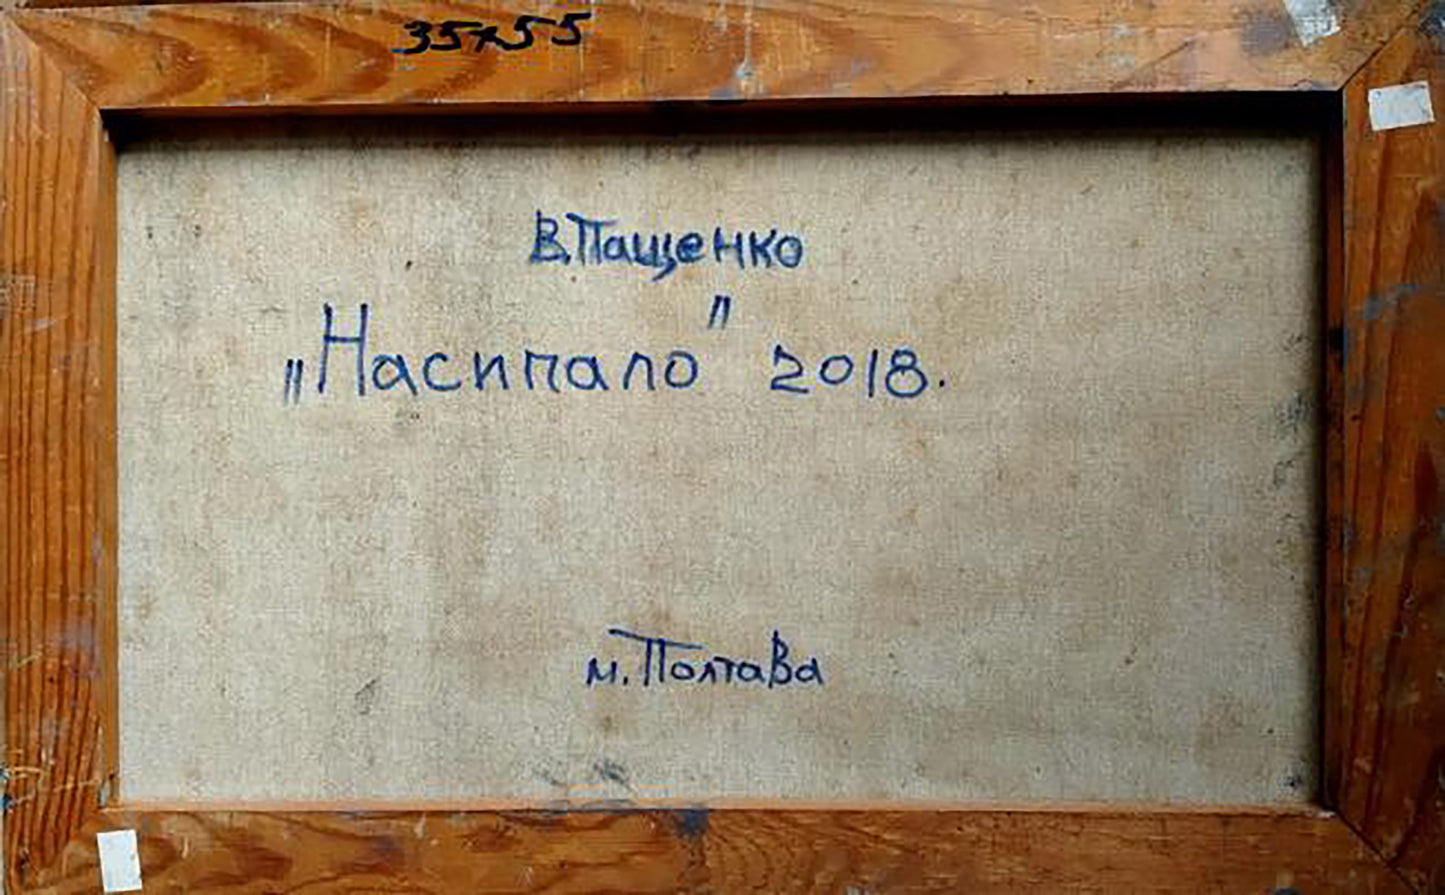 35x55
В.Пащенко
„Насипало" 2018.
м. Полтава